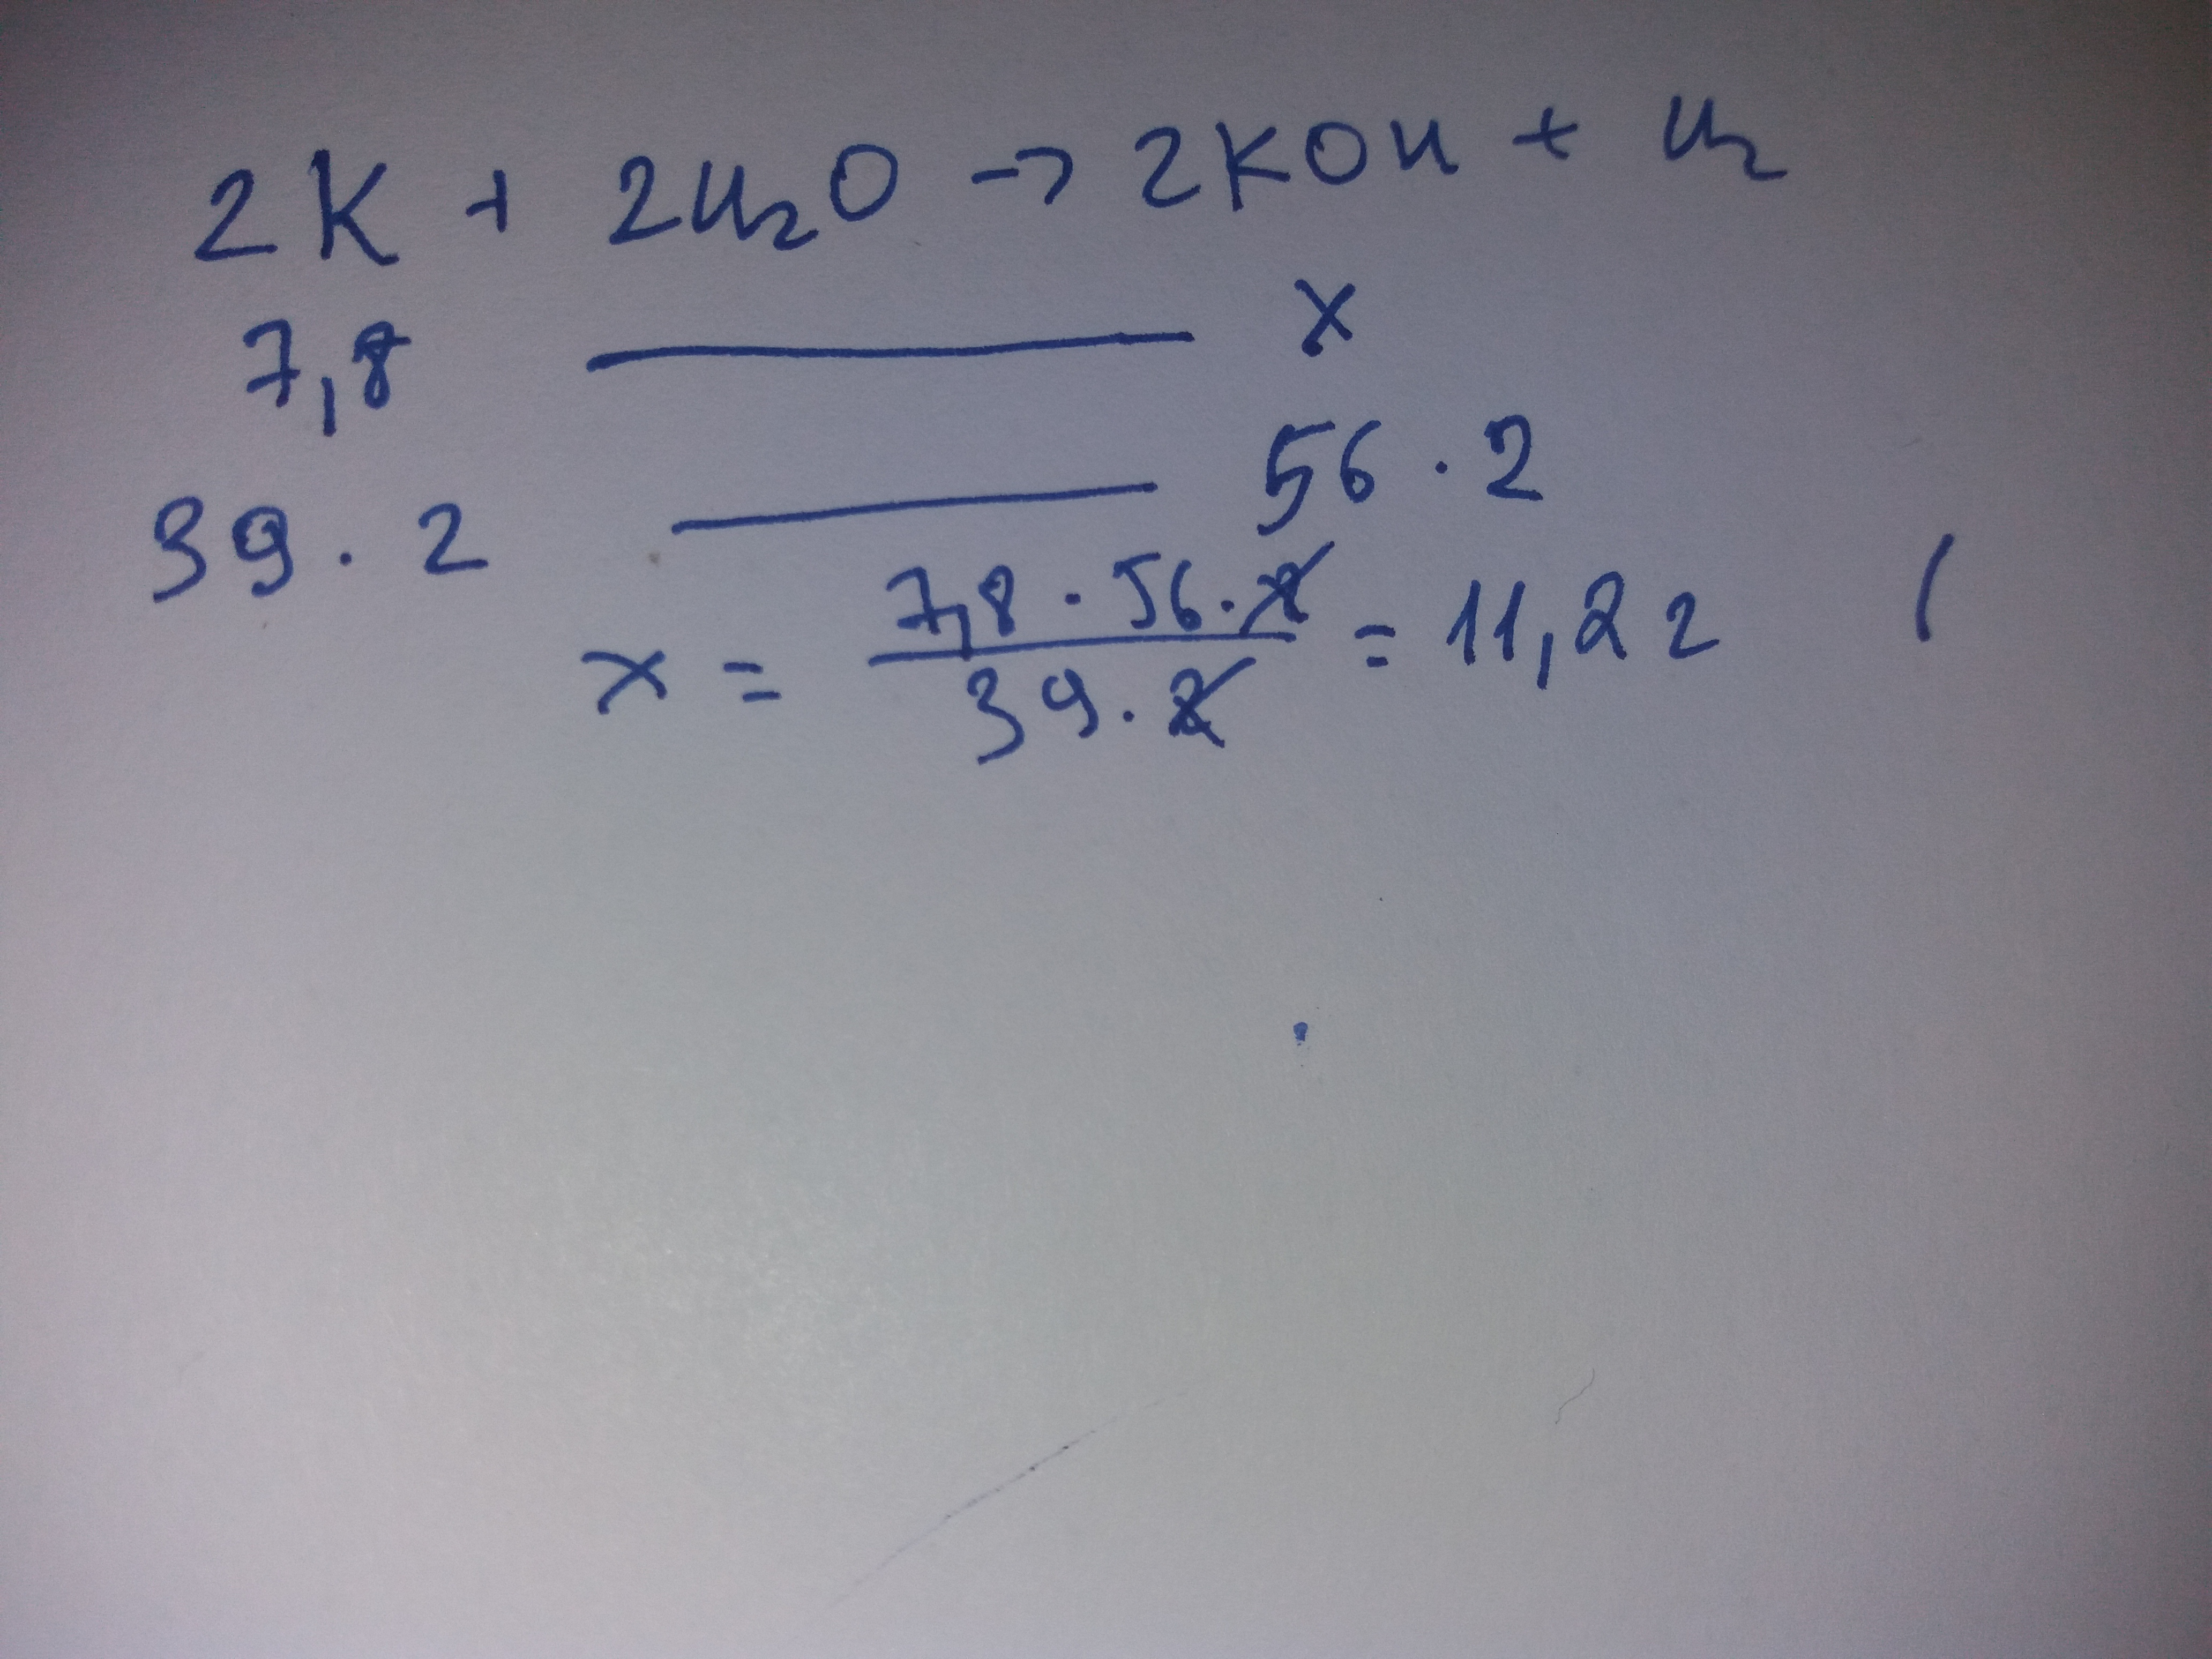 2K + 2H₂O → 2KOH + H₂
7,8 ——— x
39 · 2 ——— 56 · 2
x = (7,8 · 56 · 2) / (39 · 2) = 11,2 г (